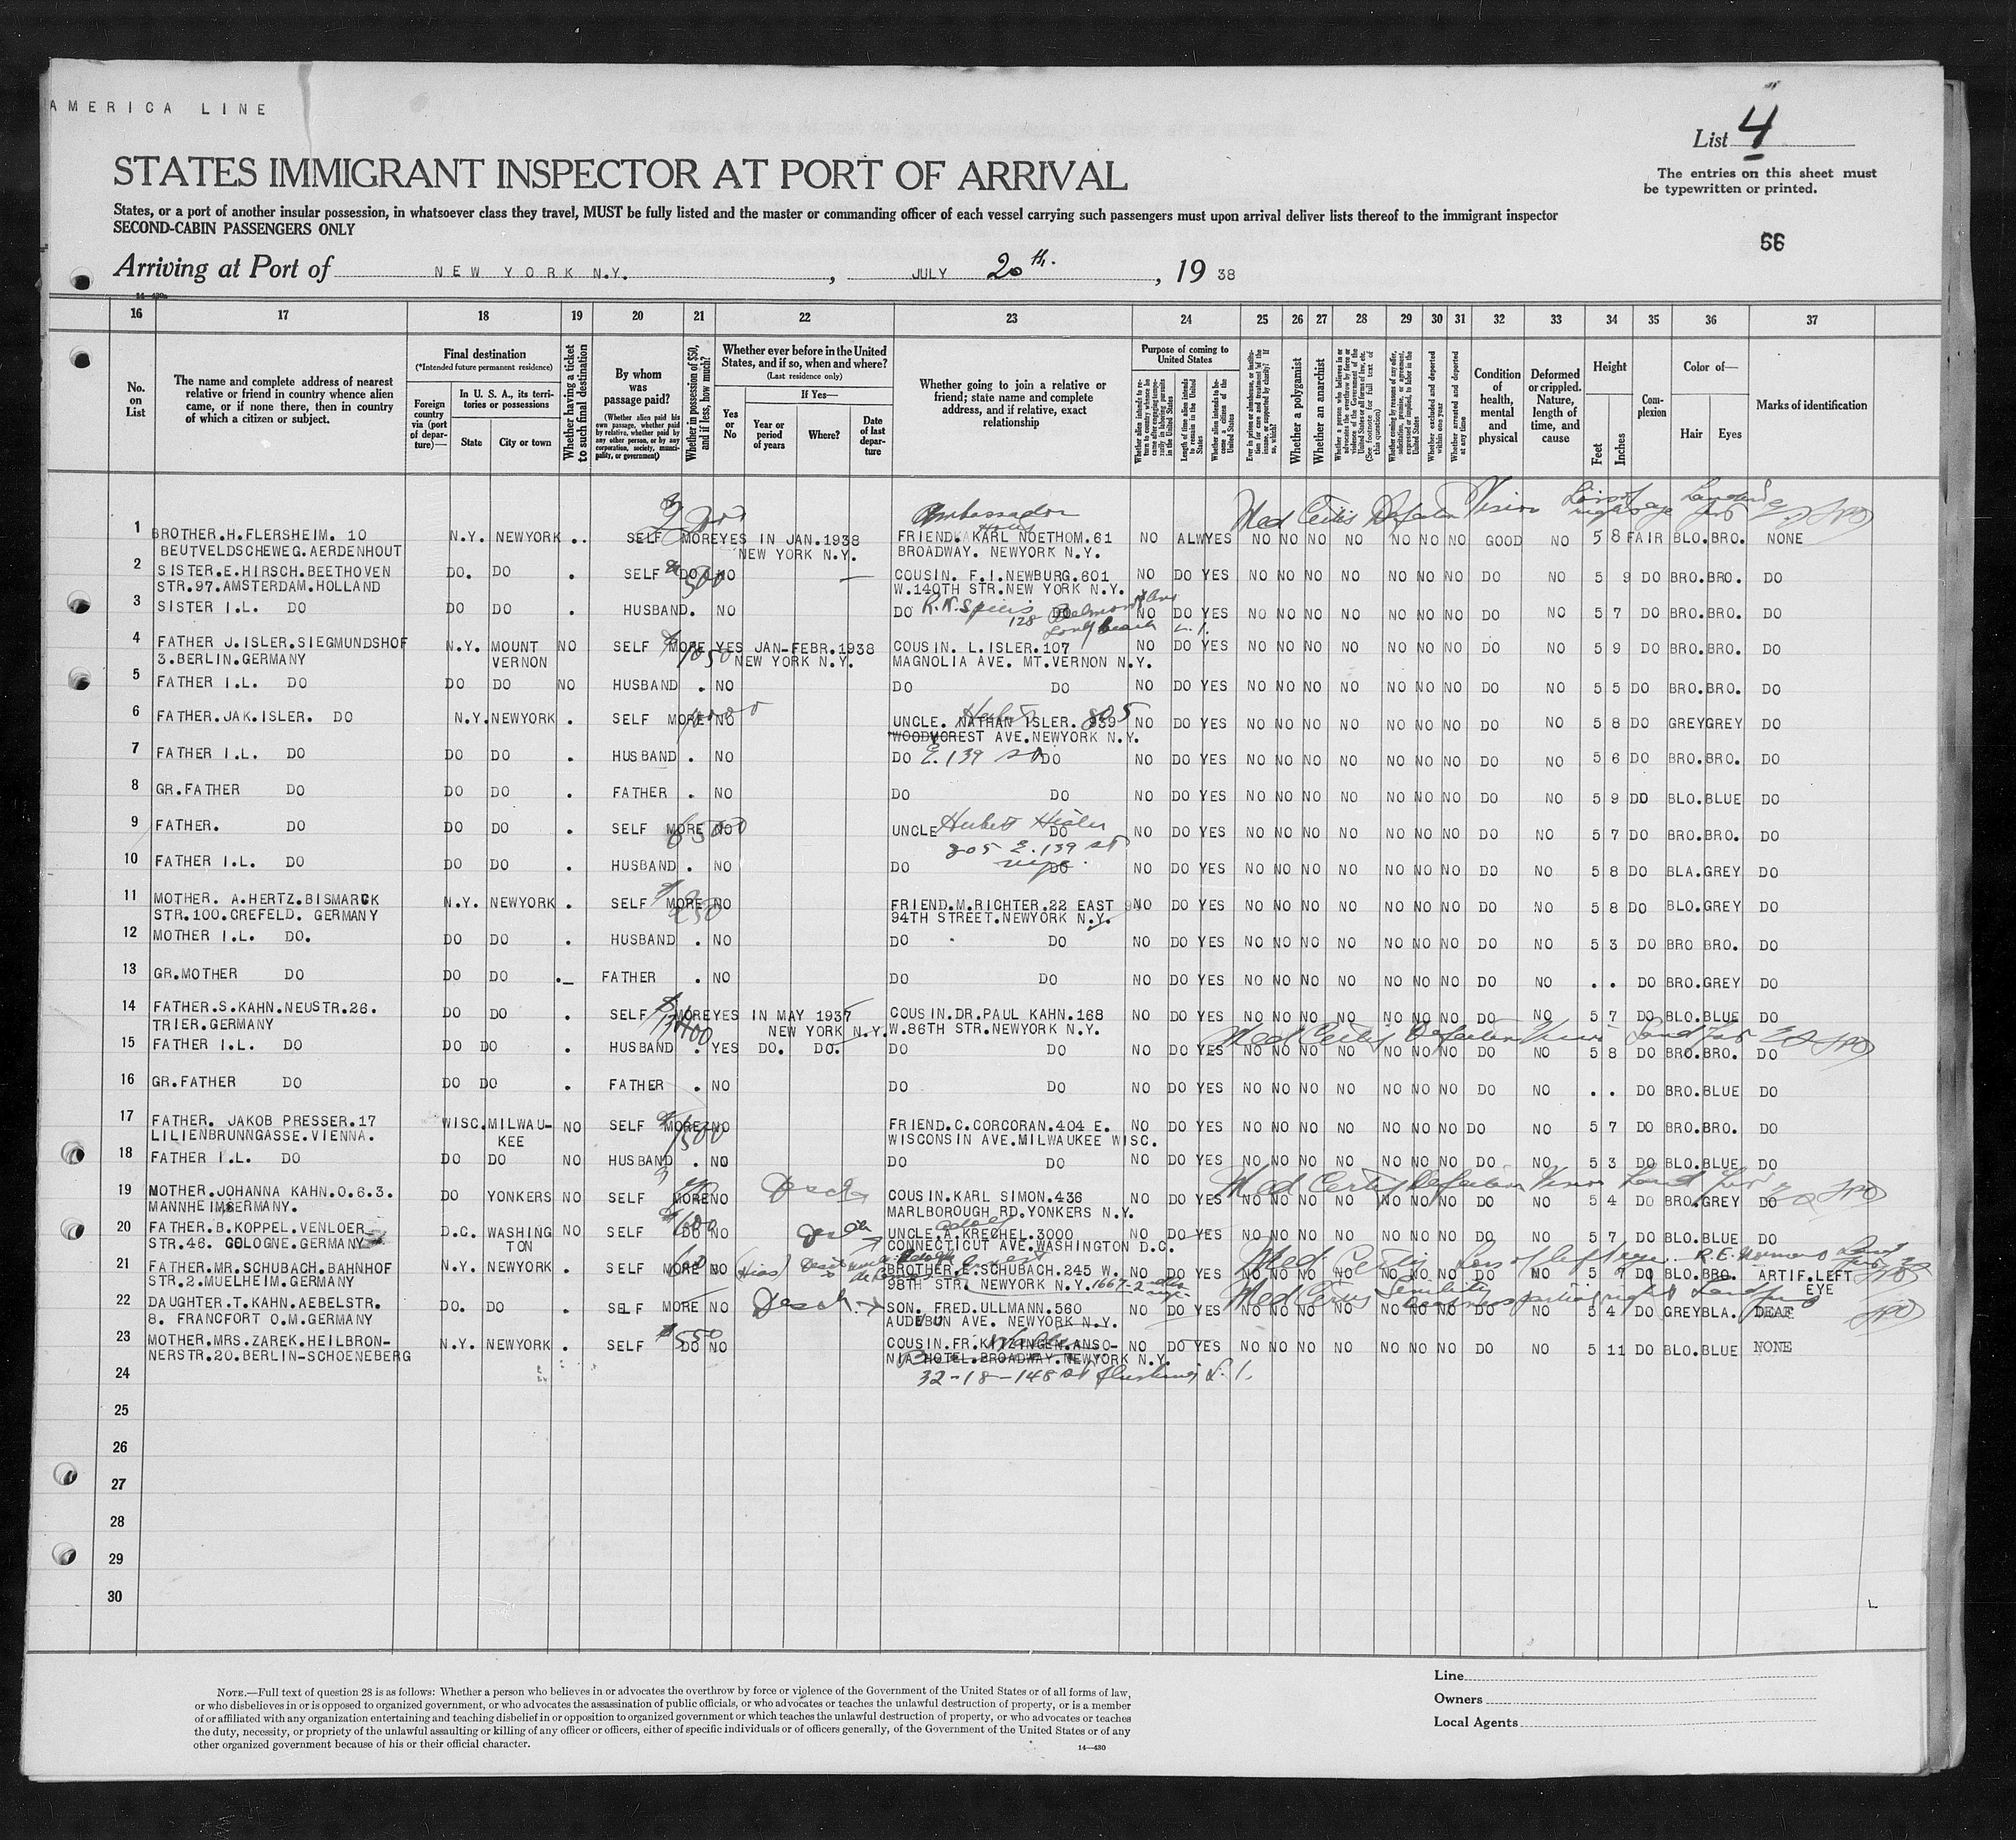 AMERICA LINE
List 4
STATES IMMIGRANT INSPECTOR AT PORT OF ARRIVAL
The entries on this sheet must
be typewritten or printed.
States, or a port of another insular possession, in whatsoever class they travel, MUST be fully listed and the master or commanding officer of each vessel carrying such passengers must upon arrival deliver lists thereof to the immigrant inspector
SECOND-CABIN PASSENGERS ONLY
66
Arriving at Port of NEW YORK N.Y. , JULY 20th. , 19 38
16 17 18 19 20 21 22 23 24 25 26 27 28 29 30 31 32 33 34 35 36 37
No. on List
The name and complete address of nearest relative or friend in country whence alien came, or if none there, then in country of which a citizen or subject.
Final destination
(*Intended future permanent residence)
Foreign country via (port of departure)—
In U. S. A., its territories or possessions
State
City or town
Whether having a ticket to such final destination
By whom was passage paid?
(Whether alien paid his own passage, whether paid by relative, whether paid by any other person, or by any corporation, society, municipality, or government)
Whether in possession of $50, and if less, how much?
Whether ever before in the United States, and if so, when and where?
(Last residence only)
Yes or No
If Yes—
Year or period of years
Where?
Date of last departure
Whether going to join a relative or friend; state name and complete address, and if relative, exact relationship
Purpose of coming to United States
Length of time alien intends to remain in the United States
Whether alien intends to become a citizen of the United States
Whether a polygamist
Whether an anarchist
Condition of health, mental and physical
Deformed or crippled. Nature, length of time, and cause
Height
Feet
Inches
Complexion
Color of—
Hair
Eyes
Marks of identification
Ambassador
Med Certis Defective Vision
1 BROTHER.H.FLERSHEIM. 10 N.Y. NEWYORK .. SELF MORE YES IN JAN.1938 FRIEND KARL NOETHOM.61 NO ALW YES NO NO NO NO NO NO NO GOOD NO 5 8 FAIR BLO.BRO. NONE
BEUTVELDSCHEWEG.AERDENHOUT NEW YORK N.Y. BROADWAY. NEWYORK N.Y.
2 SISTER.E.HIRSCH.BEETHOVEN DO. DO . SELF DO NO COUSIN. F.I.NEWBURG.601 NO DO YES NO NO NO NO NO NO NO DO NO 5 9 DO BRO.BRO. DO
STR.97.AMSTERDAM.HOLLAND W.140TH STR.NEW YORK N.Y.
3 SISTER I.L. DO DO DO . HUSBAND. NO DO DO NO DO YES NO NO NO NO NO NO NO DO NO 5 7 DO BRO.BRO. DO
128
4 FATHER J.ISLER.SIEGMUNDSHOF N.Y. MOUNT NO SELF MORE YES JAN-FEBR.1938 COUSIN. L.ISLER.107 NO DO YES NO NO NO NO NO NO NO DO NO 5 9 DO BRO.BRO. DO
3.BERLIN.GERMANY VERNON NEW YORK N.Y. MAGNOLIA AVE. MT.VERNON N.Y.
5 FATHER I.L. DO DO DO NO HUSBAND . NO DO DO NO DO YES NO NO NO NO NO NO NO DO NO 5 5 DO BRO.BRO. DO
6 FATHER.JAK.ISLER. DO N.Y. NEWYORK . SELF MORE NO UNCLE. NATHAN ISLER. 939 805 NO DO YES NO NO NO NO NO NO NO DO NO 5 8 DO GREY GREY DO
WOODYCREST AVE.NEWYORK N.Y.
7 FATHER I.L. DO DO DO . HUSBAND . NO DO E. 139 St DO NO DO YES NO NO NO NO NO NO NO DO NO 5 6 DO BRO.BRO. DO
8 GR.FATHER DO DO DO . FATHER . NO DO DO NO DO YES NO NO NO NO NO NO NO DO NO 5 9 DO BLO.BLUE DO
9 FATHER. DO DO DO . SELF MORE NO UNCLE DO NO DO YES NO NO NO NO NO NO NO DO NO 5 7 DO BRO.BRO. DO
805 E. 139 St
10 FATHER I.L. DO DO DO . HUSBAND . NO DO DO NO DO YES NO NO NO NO NO NO NO DO NO 5 8 DO BLA.GREY DO
11 MOTHER. A.HERTZ.BISMARCK N.Y. NEWYORK . SELF MORE NO FRIEND.M.RICHTER.22 EAST NO DO YES NO NO NO NO NO NO NO DO NO 5 8 DO BLO.GREY DO
STR.100.CREFELD. GERMANY 94TH STREET.NEWYORK N.Y.
12 MOTHER I.L. DO. DO DO . HUSBAND . NO DO DO NO DO YES NO NO NO NO NO NO NO DO NO 5 3 DO BRO BRO. DO
13 GR.MOTHER DO DO DO . FATHER . NO DO DO NO DO YES NO NO NO NO NO NO NO DO NO . . DO BRO.GREY DO
14 FATHER.S.KAHN.NEUSTR.26. DO DO . SELF MORE YES IN MAY 1937 COUSIN.DR.PAUL KAHN.168 NO DO YES NO NO NO NO NO NO NO DO NO 5 7 DO BLO.BLUE DO
TRIER.GERMANY NEW YORK N.Y. W.86TH STR.NEWYORK N.Y.
Med Certis Defective Vision
15 FATHER I.L. DO DO DO . HUSBAND . YES DO. DO. DO DO NO DO YES NO NO NO NO NO NO NO DO NO 5 8 DO BRO.BRO. DO
16 GR.FATHER DO DO DO . FATHER . NO DO DO NO DO YES NO NO NO NO NO NO NO DO NO . . DO BRO.BLUE DO
17 FATHER. JAKOB PRESSER.17 WISC. MILWAU- NO SELF MORE NO FRIEND.C.CORCORAN.404 E. NO DO YES NO NO NO NO NO NO NO DO NO 5 7 DO BRO.BRO. DO
LILIENBRUNNGASSE.VIENNA. KEE WISCONSIN AVE.MILWAUKEE WISC.
18 FATHER I.L. DO DO DO NO HUSBAND . NO DO DO NO DO YES NO NO NO NO NO NO NO DO NO 5 3 DO BLO.BLUE DO
Med Certis Defective Vision
19 MOTHER.JOHANNA KAHN.O.6.3. DO YONKERS NO SELF MORE NO COUSIN.KARL SIMON.436 NO DO YES NO NO NO NO NO NO NO DO NO 5 4 DO BRO.GREY DO
MANNHEIM GERMANY. MARLBOROUGH RD.YONKERS N.Y.
20 FATHER.B.KOPPEL.VENLOER D.C. WASHING NO SELF DO NO UNCLE.A.KRECHEL.3000 NO DO YES NO NO NO NO NO NO NO DO NO 5 7 DO BLO.BLUE DO
STR.46. COLOGNE.GERMANY TON CONNECTICUT AVE.WASHINGTON D.C.
Med Certis Loss of left eye
21 FATHER.MR.SCHUBACH.BAHNHOF N.Y. NEWYORK . SELF MORE NO BROTHER.E.SCHUBACH.245 W. NO DO YES NO NO NO NO NO NO NO DO NO 5 7 DO BLO.BRO. ARTIF.LEFT
STR.2.MUELHEIM.GERMANY 98TH STR. NEWYORK N.Y. EYE
22 DAUGHTER.T.KAHN.AEBELSTR. DO. DO . SELF MORE NO SON. FRED.ULLMANN.560 NO DO YES NO NO NO NO NO NO NO DO NO 5 4 DO GREY BLA. DEAF
8. FRANCFORT O.M.GERMANY AUDEBUN AVE. NEWYORK N.Y.
23 MOTHER.MRS.ZAREK.HEILBRON- N.Y. NEWYORK . SELF $550 DO NO COUSIN.FR.KITZINGEN.ANSO- NO DO YES NO NO NO NO NO NO NO DO NO 5 11 DO BLO.BLUE NONE
NERSTR.20.BERLIN-SCHOENEBERG NIA HOTEL.BROADWAY.NEWYORK N.Y.
24 32-18-148 St Flushing L.I.
25
26
27
28
29
30
Line
Owners
Local Agents
NOTE.—Full text of question 28 is as follows: Whether a person who believes in or advocates the overthrow by force or violence of the Government of the United States or of all forms of law,
or who disbelieves in or is opposed to organized government, or who advocates the assassination of public officials, or who advocates or teaches the unlawful destruction of property, or is a member
of or affiliated with any organization entertaining and teaching disbelief in or opposition to organized government or which teaches the unlawful destruction of property, or who advocates or teaches
the duty, necessity, or propriety of the unlawful assaulting or killing of any officer or officers, either of specific individuals or of officers generally, of the Government of the United States or of any
other organized government because of his or their official character.
14—430